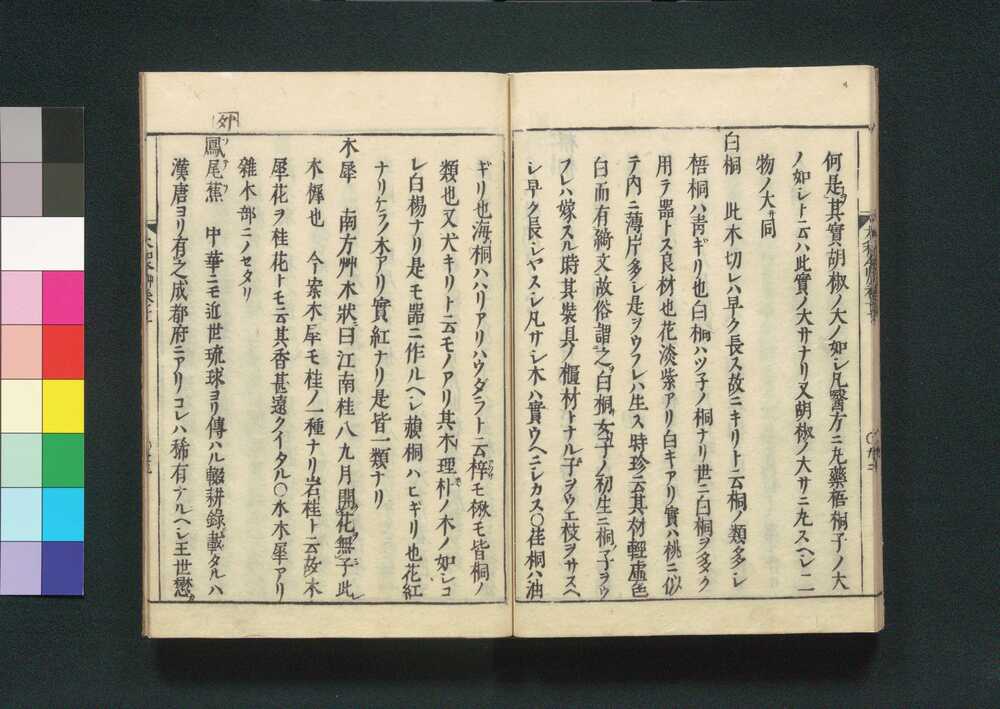 何是其實胡椒ノ大ノ如シ凡醫方ニ丸藥梧桐子ノ大
ノ如シト云ハ此實ノ大サナリ又胡椒ノ大サニ丸スヘシ二
物ノ大サ同
白桐 此木切レハ早ク長ス故ニキリト云桐ノ類多シ
梧桐ハ靑ギリ也白桐ハツ子ノ桐ナリ世ニ白桐ヲ多ク
用テ器トス良材也花淡紫アリ白キアリ實ハ桃ニ似
テ内ニ薄片多シ是ヲウフレハ生ス時珍云其材輕虛色
白而有綺文故俗謂之白桐女子ノ初生ニ桐子ヲウ
フレハ嫁スル時其裝具ノ櫃材トナル子ヲウエ枝ヲサスヘ
シ早ク長シヤスシ凡サシ木ハ實ウヘニシカス○佳桐ハ油
ギリ也海桐ハハリアリハウダラト云梓モ楸モ皆桐ノ
類也又犬キリト云モノアリ其木理朴ノ木ノ如シコ
レ白楊ナリ是モ器ニ作ルヘシ赬桐ハヒギリ也花紅
ナリケラノ木アリ實紅ナリ是皆一類ナリ
木犀 南方艸木狀曰江南桂八九月開花無子此レ
木犀也 今案木犀モ桂ノ一種ナリ岩桂ト云故木
犀花ヲ桂花トモ云其香甚遠クイタル○水木犀アリ
雜木部ニノセタリ
外
鳳尾蕉 中華ニモ近世琉球ヨリ傳ハル輟耕錄ニ載タルハ
漢唐ヨリ有之成都府ニアリコレハ稀有ナルヘシ王世懋